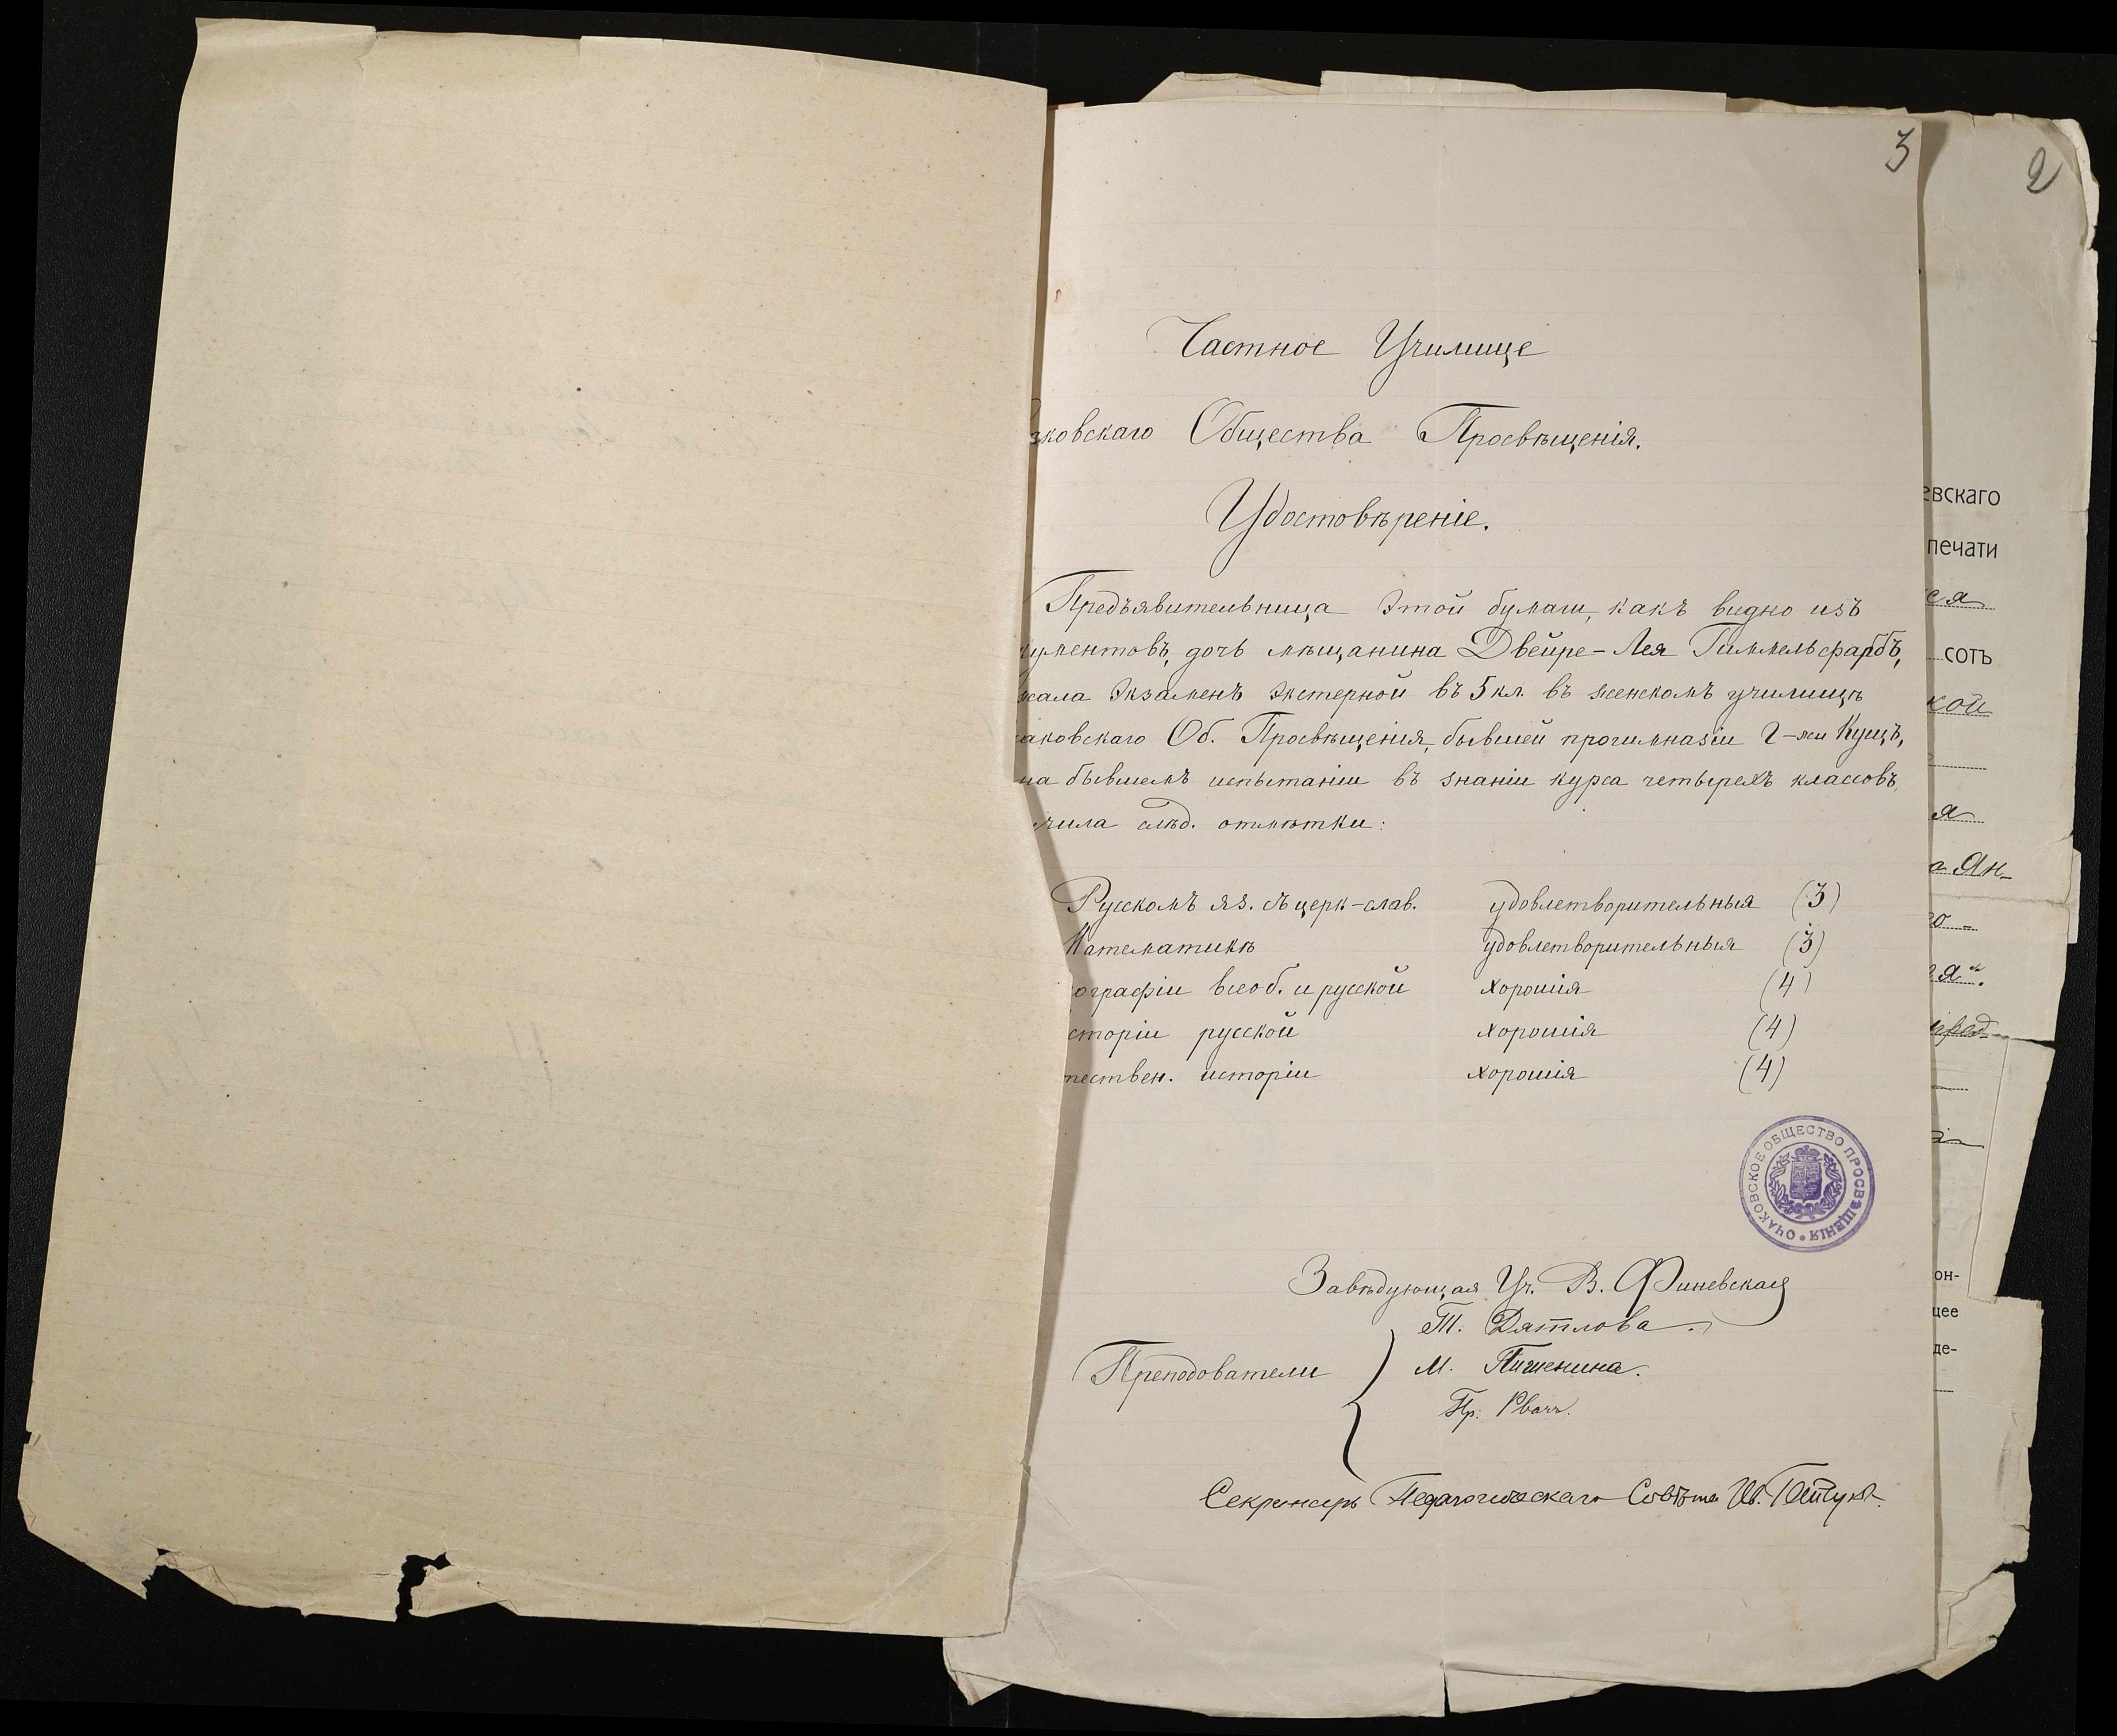 3
2
Частное Училище
ковскаго Общества Просвѣщенія.
Удостовѣреніе.
Предъявительница этой бумаги, какъ видно изъ
кументовъ, дочь мѣщанина Двейре-Лея Гиммельфарбъ,
жала экзаменъ экстерной въ 5 кл. въ женскомъ училищѣ
аковскаго Об. Просвѣщенія, бывшей прогимназіи Г-жи Кущъ,
на бывшемъ испытаніи въ знаніи курса четырехъ классовъ,
чила слѣд. отмѣтки:
Русскомъ яз. съ церк-слав. удовлетворительныя (3)
Математикѣ удовлетворительныя (3)
ографіи всеоб. и русской хорошія (4)
сторіи русской хорошія (4)
тествен. исторіи хорошія (4)
ОЧАКОВСКОЕ ОБЩЕСТВО ПРОСВѢЩЕНІЯ
Завѣдующая Уч. В. Финевская
Т. Дятлова.
Преподователи М. Пишенина.
Пр. Рвач.
Секретарь Педагогическаго Совѣта Ив.
евскаго
печати
ся
сотъ
кой
я
а Ян-
го -
ія".
пред-
он-
щее
де-